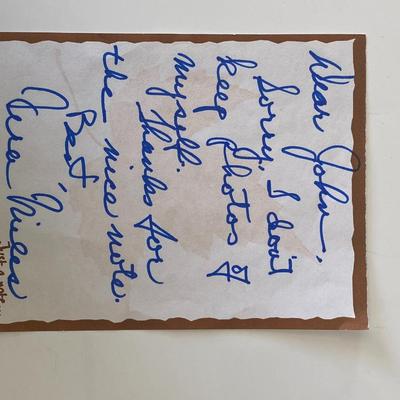 Dear John,
Sorry, I don't
keep photos of
myself.
Thanks for
the nice note.
Best,
Vera Miles
Just a note...